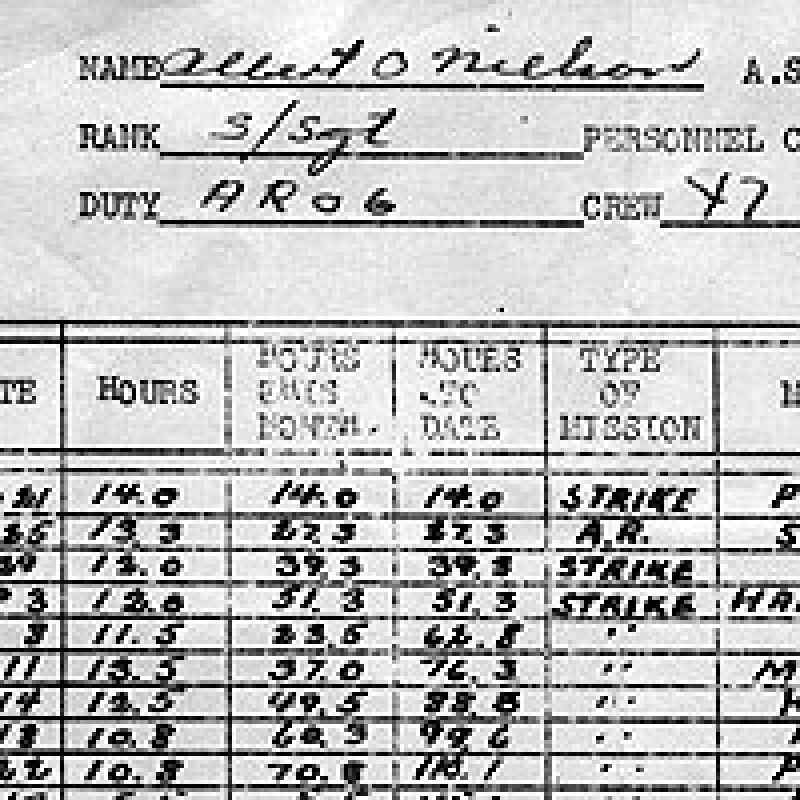 NAME Albert O Nielson A.S
RANK S/Sgt PERSONNEL C
DUTY AROG CREW 47
TE HOURS HOURS THIS MONTH HOURS TO DATE TYPE OF MISSION
21 14.0 14.0 14.0 STRIKE P
25 13.3 27.3 27.3 A.R. S
12.0 39.3 39.3 STRIKE
3 12.0 51.3 51.3 STRIKE HA
8 11.5 23.5 62.8 "
11 13.5 37.0 76.3 " M
14 12.5 49.5 88.8 "
18 10.8 60.3 99.6 "
22 10.8 70.8 " P